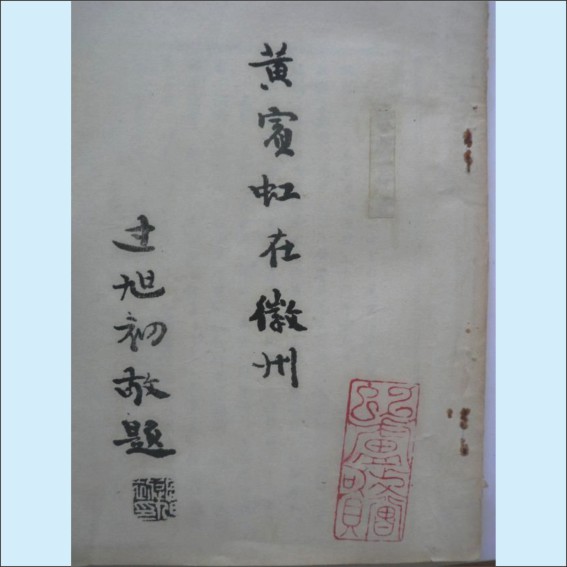 黄賓虹在徽州
旭初敬題